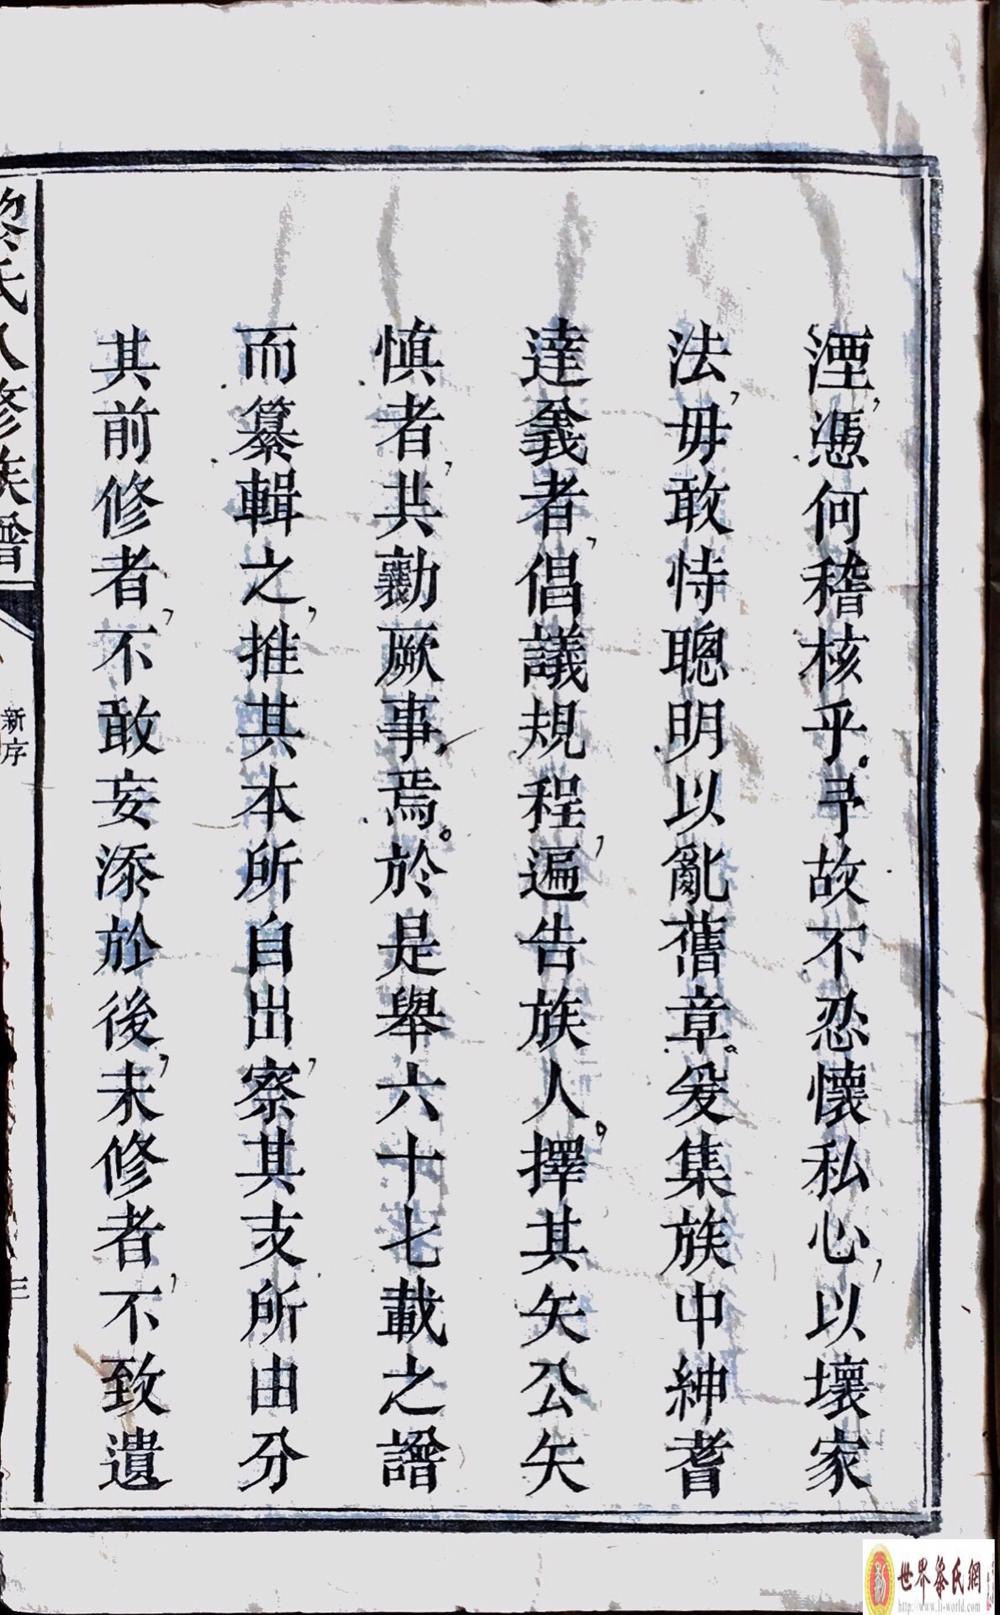 湮，憑何稽核乎。予故不忍懷私心，以壞家
法，毋敢恃聰明以亂舊章。爰集族中紳耆
達義者，倡議規程，遍告族人。擇其矢公矢
慎者，共勷厥事焉。於是舉六十七載之譜
而纂輯之，推其本所自出，察其支所由分
其前修者，不敢妄添於後，未修者，不致遺
黎氏八修族譜
新序
三
世界黎氏網
http://www.li-world.com